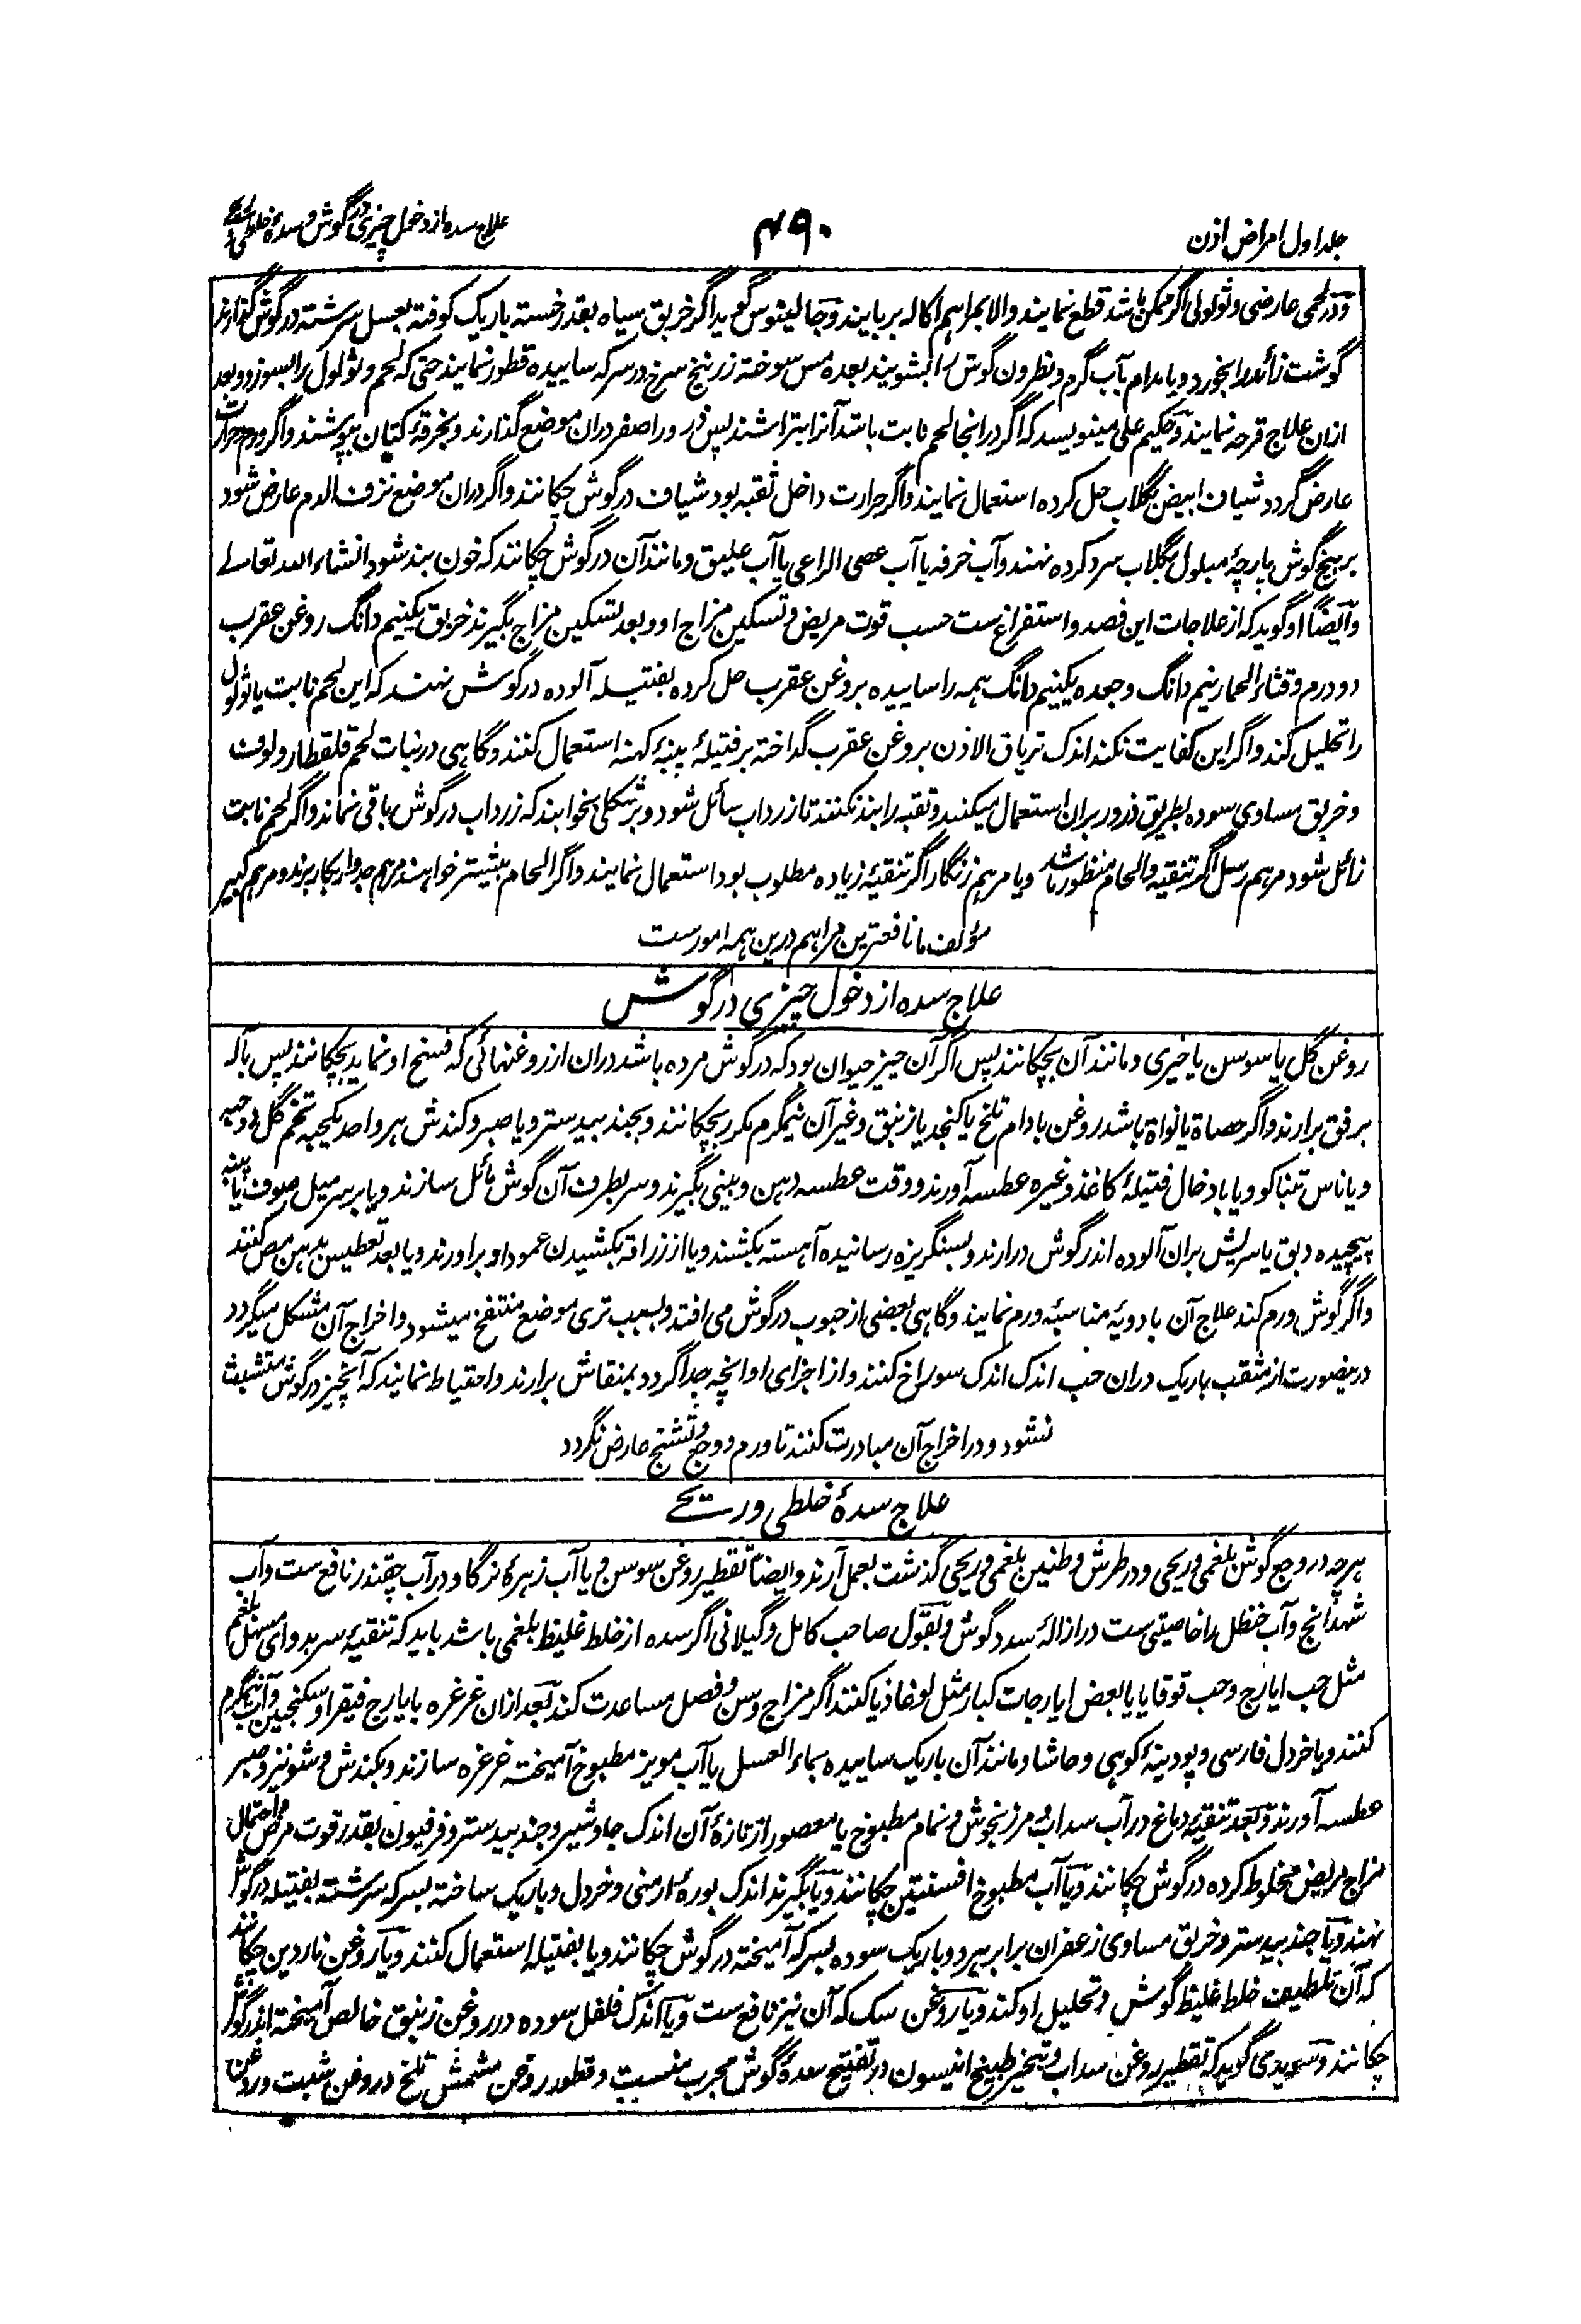 جلد اول امراض اذن
۴۹۰
علاج سده از دخول چیزی در گوش و سدهٔ خلطی
و در لحمی عارضی و ثولولی اگر ممکن باشد قطع نمایند والا بمراهم اکاله بربایند و جالینوس گوید اگر خربق سیاه بقدر خسته باریک کوفته بعسل سرشته در گوش گذارند
گوشت زائد را بخورد و یا مدام بآب گرم و نطرون گوش را بشویند بعده مس سوخته زرنیخ سرخ در سرکه ساییده قطور نمایند حتی که لحم و ثولول را بسوزد و بعد
ازان علاج قرحه نمایند و حکیم علی مینویسد که اگر در انجا لحم نابت باشد آنرا بتراشند پس ذرور اصفر دران موضع گذارند و بخرقهٔ کتان بپوشند و اگر ورم و حرارت
عارض گردد شیاف ابیض بگلاب حل کرده استعمال نمایند و اگر حرارت داخل ثقبه بود شیاف در گوش چکانند و اگر دران موضع نزف الدم عارض شود
بر بیخ گوش پارچهٔ مبلول بگلاب سرد کرده نهند و آب خرفه یا آب عصی الراعی یا آب علیق و مانند آن در گوش چکانند که خون بند شود انشاء الله تعالے
و ایضاً او گوید که از علاجات این فصد و استفراغ ست حسب قوت مریض و تسکین مزاج او و بعد تسکین مزاج بگیرند خربق یکنیم دانگ روغن عقرب
دو درم و قثاء الحمار نیم دانگ و جعده یکنیم دانگ همه را ساییده بروغن عقرب حل کرده بفتیله آلوده در گوش نهند که این لحم نابت یا ثولول
را تحلیل کند و اگر این کفایت نکند اندک تریاق الاذن بروغن عقرب گداخته بر فتیلهٔ پنبهٔ کهنه استعمال کنند و گاهی در نبات لحم قلقطار و لوف
و خربق مساوی سوده بطریق ذرور بران استعمال میکنند و ثقبه را بند نکنند تا زرداب سائل شود و بر شکلی بخوابند که زرداب در گوش باقی نماند و اگر لحم نابت
زائل شود مرهم رسل اگر تنقیه و الحام منظور باشد و یا مرهم زنگار اگر تنقیهٔ زیاده مطلوب بود استعمال نمایند و اگر الحام بیشتر خواهند مرهم جدوار بکار برند و مرهم کبیر
مؤلف ما نافعترین مراهم درین همه امورست
علاج سده از دخول چیزی در گوش
روغن گل یا سوسن یا خیری و مانند آن بچکانند پس اگر آن چیز حیوان بود که در گوش مرده باشد دران از روغنهائی که فسخ او نماید بچکانند پس بآله
برفق برارند و اگر حصاة یا نواة باشد روغن بادام تلخ یا کنجد یا زنبق و غیر آن نیمگرم مکرر بچکانند و بجند بیدستر و یا صبر و کندش هر واحد یکحبه تخم گل دو حبه
و یا ناس تنباکو و یا بادخال فتیلهٔ کاغذ و غیره عطسه آورند و وقت عطسه دهن و بینی بگیرند و سر بطرف آن گوش مائل سازند و یا بر سر میل صوف یا پنبه
پیچیده دبق یا سریش بران آلوده اندر گوش درارند و بسنگریزه رسانیده آهسته بکشند و یا از زراقه بکشیدن عمود او برآورند و یا بعد تعطیس بدهن مص کنند
و اگر گوش ورم کند علاج آن بادویهٔ مناسبهٔ ورم نمایند و گاهی بعضی از حبوب در گوش می افتد و بسبب تری موضع منتفخ میشود و اخراج آن مشکل میگردد
درینصورت از مثقب باریک دران حب اندک اندک سوراخ کنند و از اجزای او انچه جدا گردد بمنقاش برارند و احتیاط نمایند که آنچیز در گوش متشبث
نشود و در اخراج آن مبادرت کنند تا ورم و وجع و تشنج عارض نگردد
علاج سدهٔ خلطی و ریحی
هرچه در وجع گوش بلغمی و ریحی و در طرش و طنین بلغمی و ریحی گذشت بعمل آرند و ایضاً تقطیر روغن سوسن و یا آب زهرهٔ نرگاو در آب چقندر نافع ست و آب
شهدانج و آب حنظل را خاصیتی ست در ازالهٔ سدد گوش و بقول صاحب کامل و گیلانی اگر سده از خلط غلیظ بلغمی باشد باید که تنقیهٔ سر بدوای مسهل بلغم
مثل حب ایارج و حب قوقایا یا بعض ایارجات کبار مثل لوغاذیا کنند اگر مزاج و سن و فصل مساعدت کند بعد ازان غرغره بایارج فیقرا و سکنجبین و آب نیمگرم
کنند و یا خردل فارسی و پودینهٔ کوهی و حاشا و مانند آن باریک ساییده بماء العسل یا آب مویز مطبوخ آمیخته غرغره سازند و بکندش و شونیز و صبر
عطسه آورند و بعد تنقیهٔ دماغ در آب سداب و مرزنجوش و نمام مطبوخ یا معصور از تازهٔ آن اندک جاوشیر و جند بیدستر و فرفیون بقدر قوت مرض و احتمال
مزاج مریض مخلوط کرده در گوش چکانند و یا آب مطبوخ افسنتین چکانند و یا بگیرند اندک بورهٔ ارمنی و خردل و باریک ساخته بسرکه سرشته بفتیله در گوش
نهند و یا جند بیدستر و خربق مساوی زعفران برابر هردو باریک سوده بسرکه آمیخته در گوش چکانند و یا بفتیله استعمال کنند و یا روغن ناردین چکانند
که آن تلطیف خلط غلیظ گوش و تحلیل او کند و یا روغن سک که آن نیز نافع ست و یا اندک فلفل سوده در روغن زنبق خالص آمیخته اندر گوش
چکانند و سویدی گوید که تقطیر روغن سداب و تبخیر طبیخ انیسون در تفتیح سدهٔ گوش مجرب منست و قطور روغن مشمش تلخ و روغن شبت و روغن